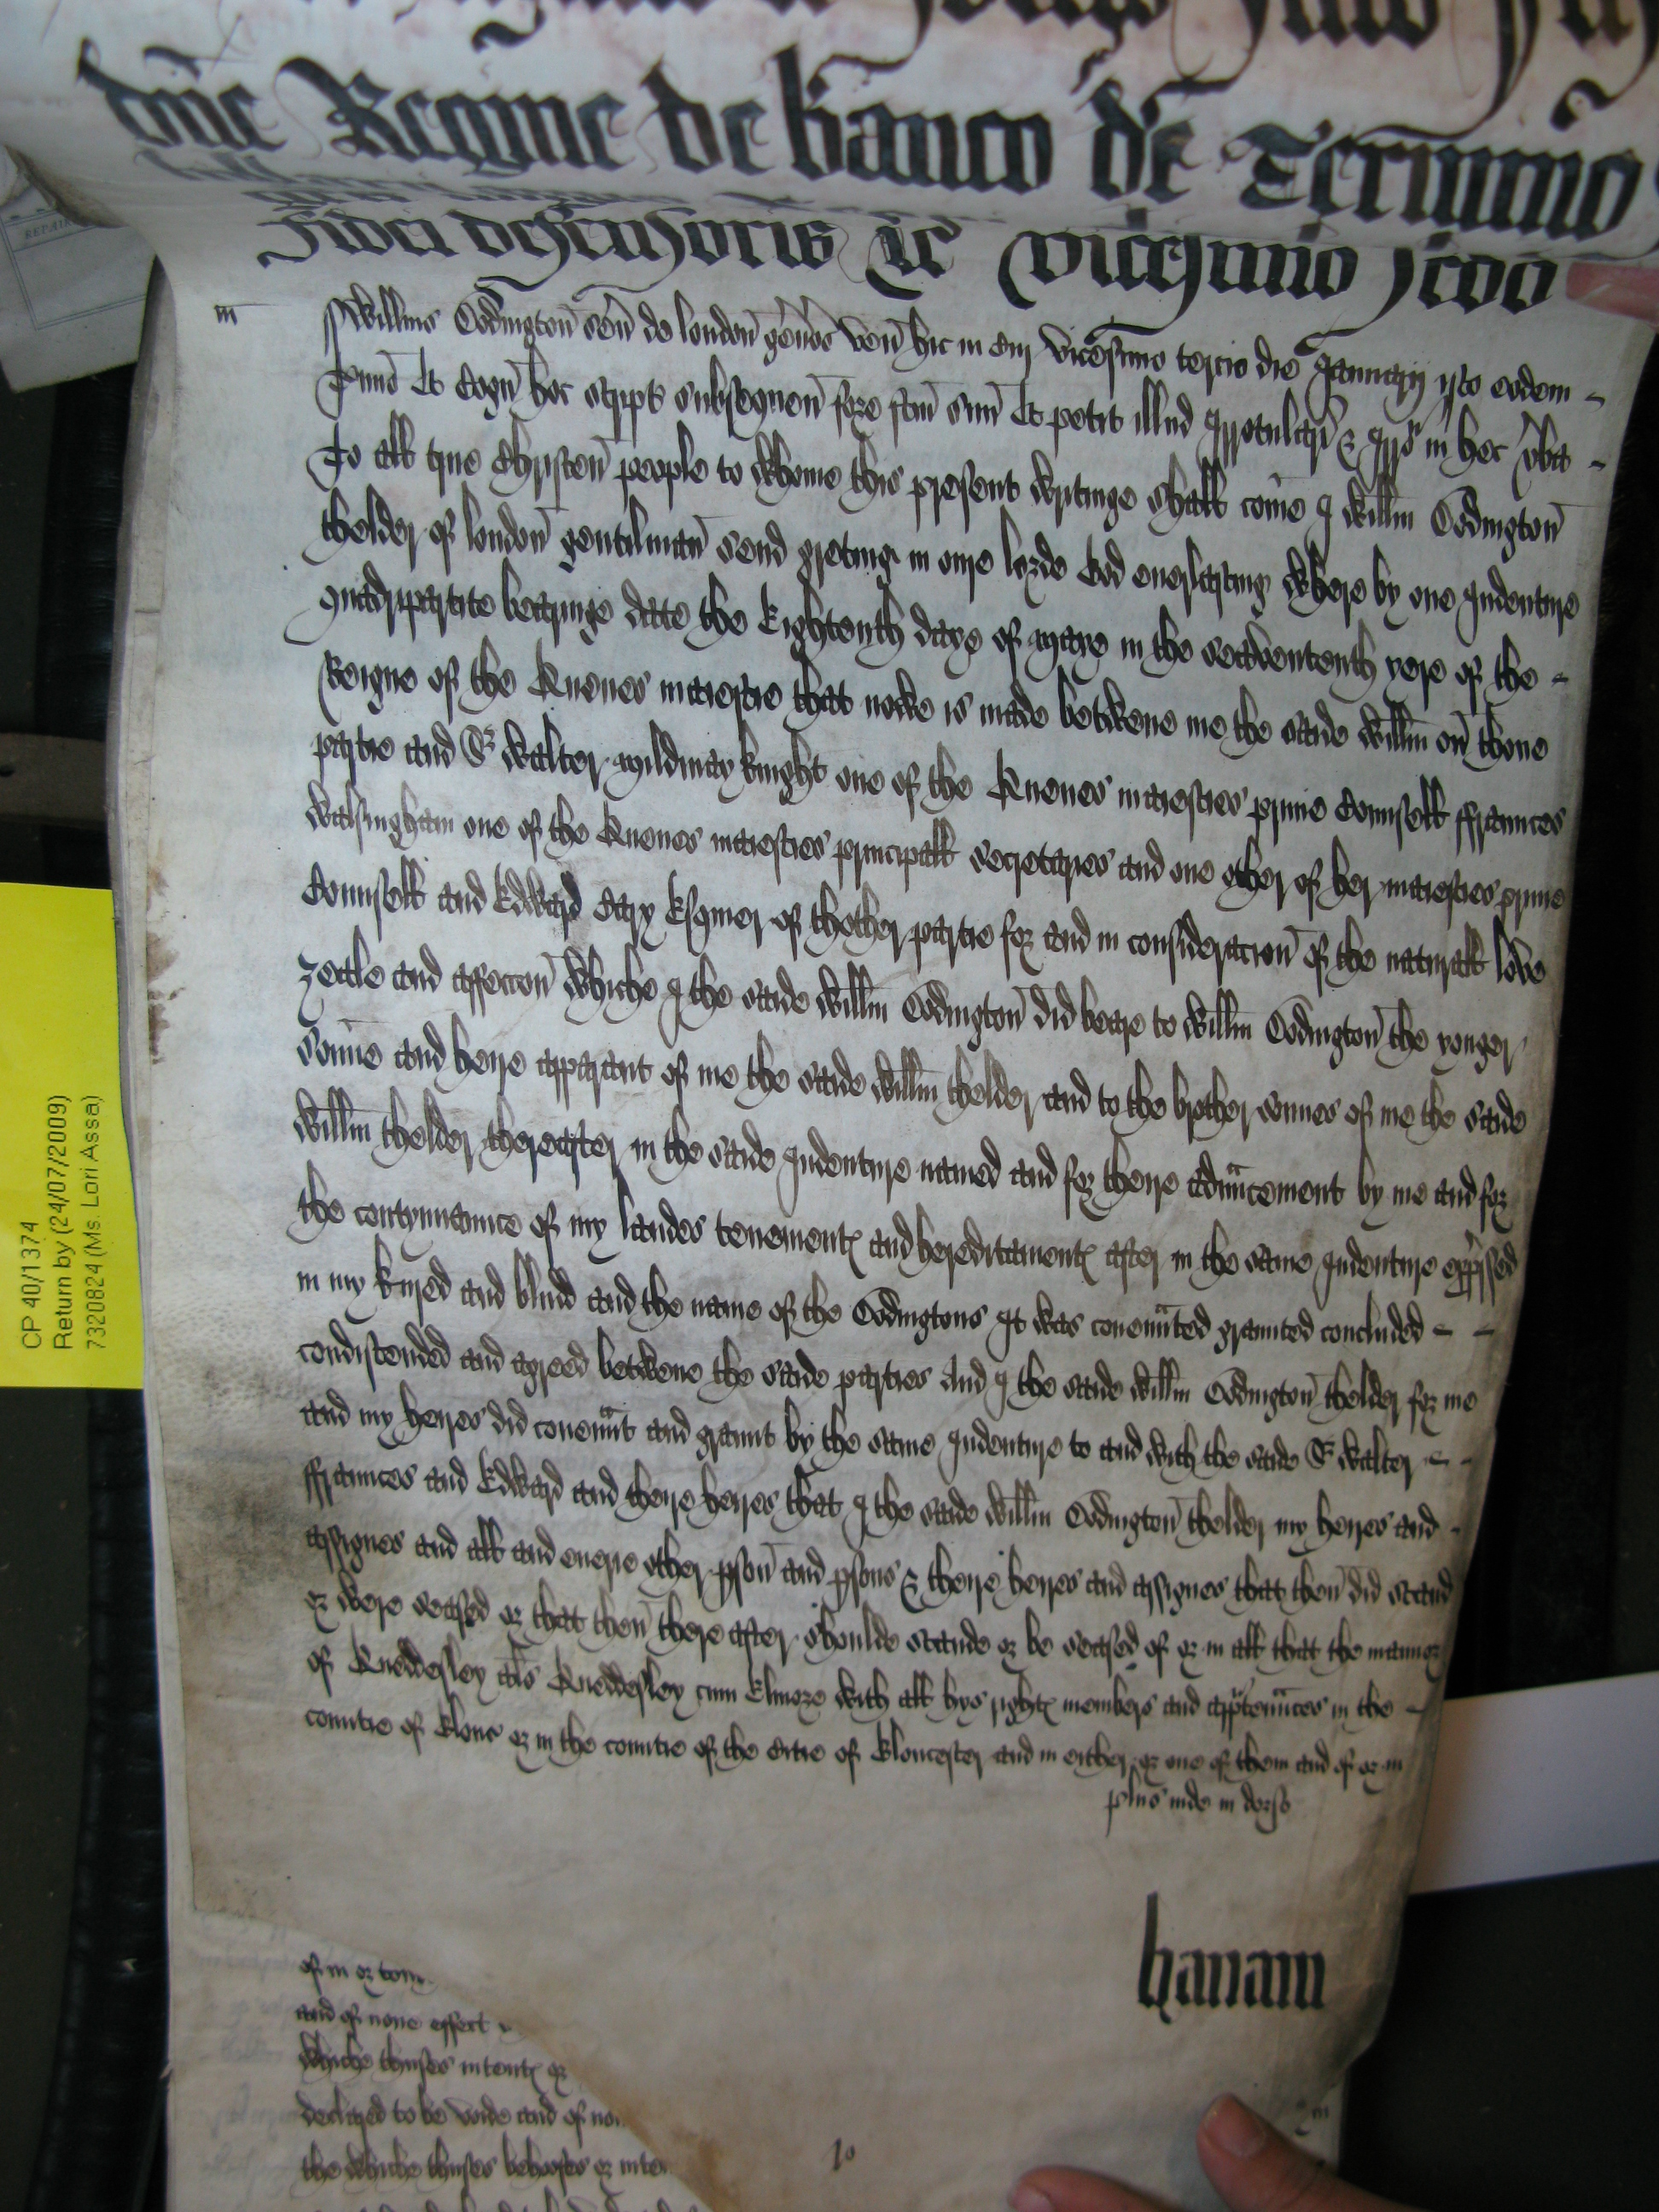 dñe Regine de banco de Termino
fidei defensoris &c vicesimo scdo
m̄ Willms Dodington sen de london genos ven hic in Cur vicesimo tercio die Januarij isto eodem
Tmio Et cogn hoc scriptu subsequen fore fcm suu Et petit illud Irrotulari & Irro in hec vba
To all true Christen people to whome this present writinge shall come I Willm Dodington
thelder of london gentilman send greting in oure lorde God euerlasting Where by one Indenture
quadripartite bearinge date the Eightenth daye of maye in the seavententh yere of the
Reigne of the Quenes maiestie that nowe is made betwene me the saide Willm on thone
partie and Sr Walter mildmay knight one of the Quenes maiesties privie Counsell ffraunces
Walsingham one of the Quenes maiesties principall Secretaries and one other of her maiesties privie
Counsell and Edward Cary Esquier of thother partie for and in consideracion of the naturall love
zeale and affeccon whiche I the saide Willm Dodington did beare to Willm Dodington the yonger
Sonne and heire apparant of me the saide Willm thelder and to the brother sonnes of me the saide
Willm thelder thereafter in the saide Indenture named and for theire advancement by me and for
the contynuance of my landes tenements and hereditaments after in the same Indenture expressed
in my kinred and blud and the name of the Dodingtons It was covenanted graunted concluded
condistended and agreed betwene the saide parties And I the saide Willm Dodington thelder for me
and my heires did covenant and graunt by the same Indenture to and with the saide Sr Walter
ffraunces and Edward and theire heires that I the saide Willm Dodington thelder my heires and
assignes and all and euerie other pson and psons & theire heires and assignes that then did stand
or were seased or that then there after shoulde stande or be seased of or in all that the mannor
of Queddesley als Queddesley cum Elmore with all hys rights members and apptennces in the
countie of Glouc or in the countie of the Citie of Gloucester and in either or one of them and of or in
plus inde in dorso
hanam
of in or
and of none effect
whiche thuses intents or
declared to be voide and of
the whiche thuses behoofes or
10
CP 40/1374
Return by (24/07/2009)
7320824 (Ms. Lori Assa)